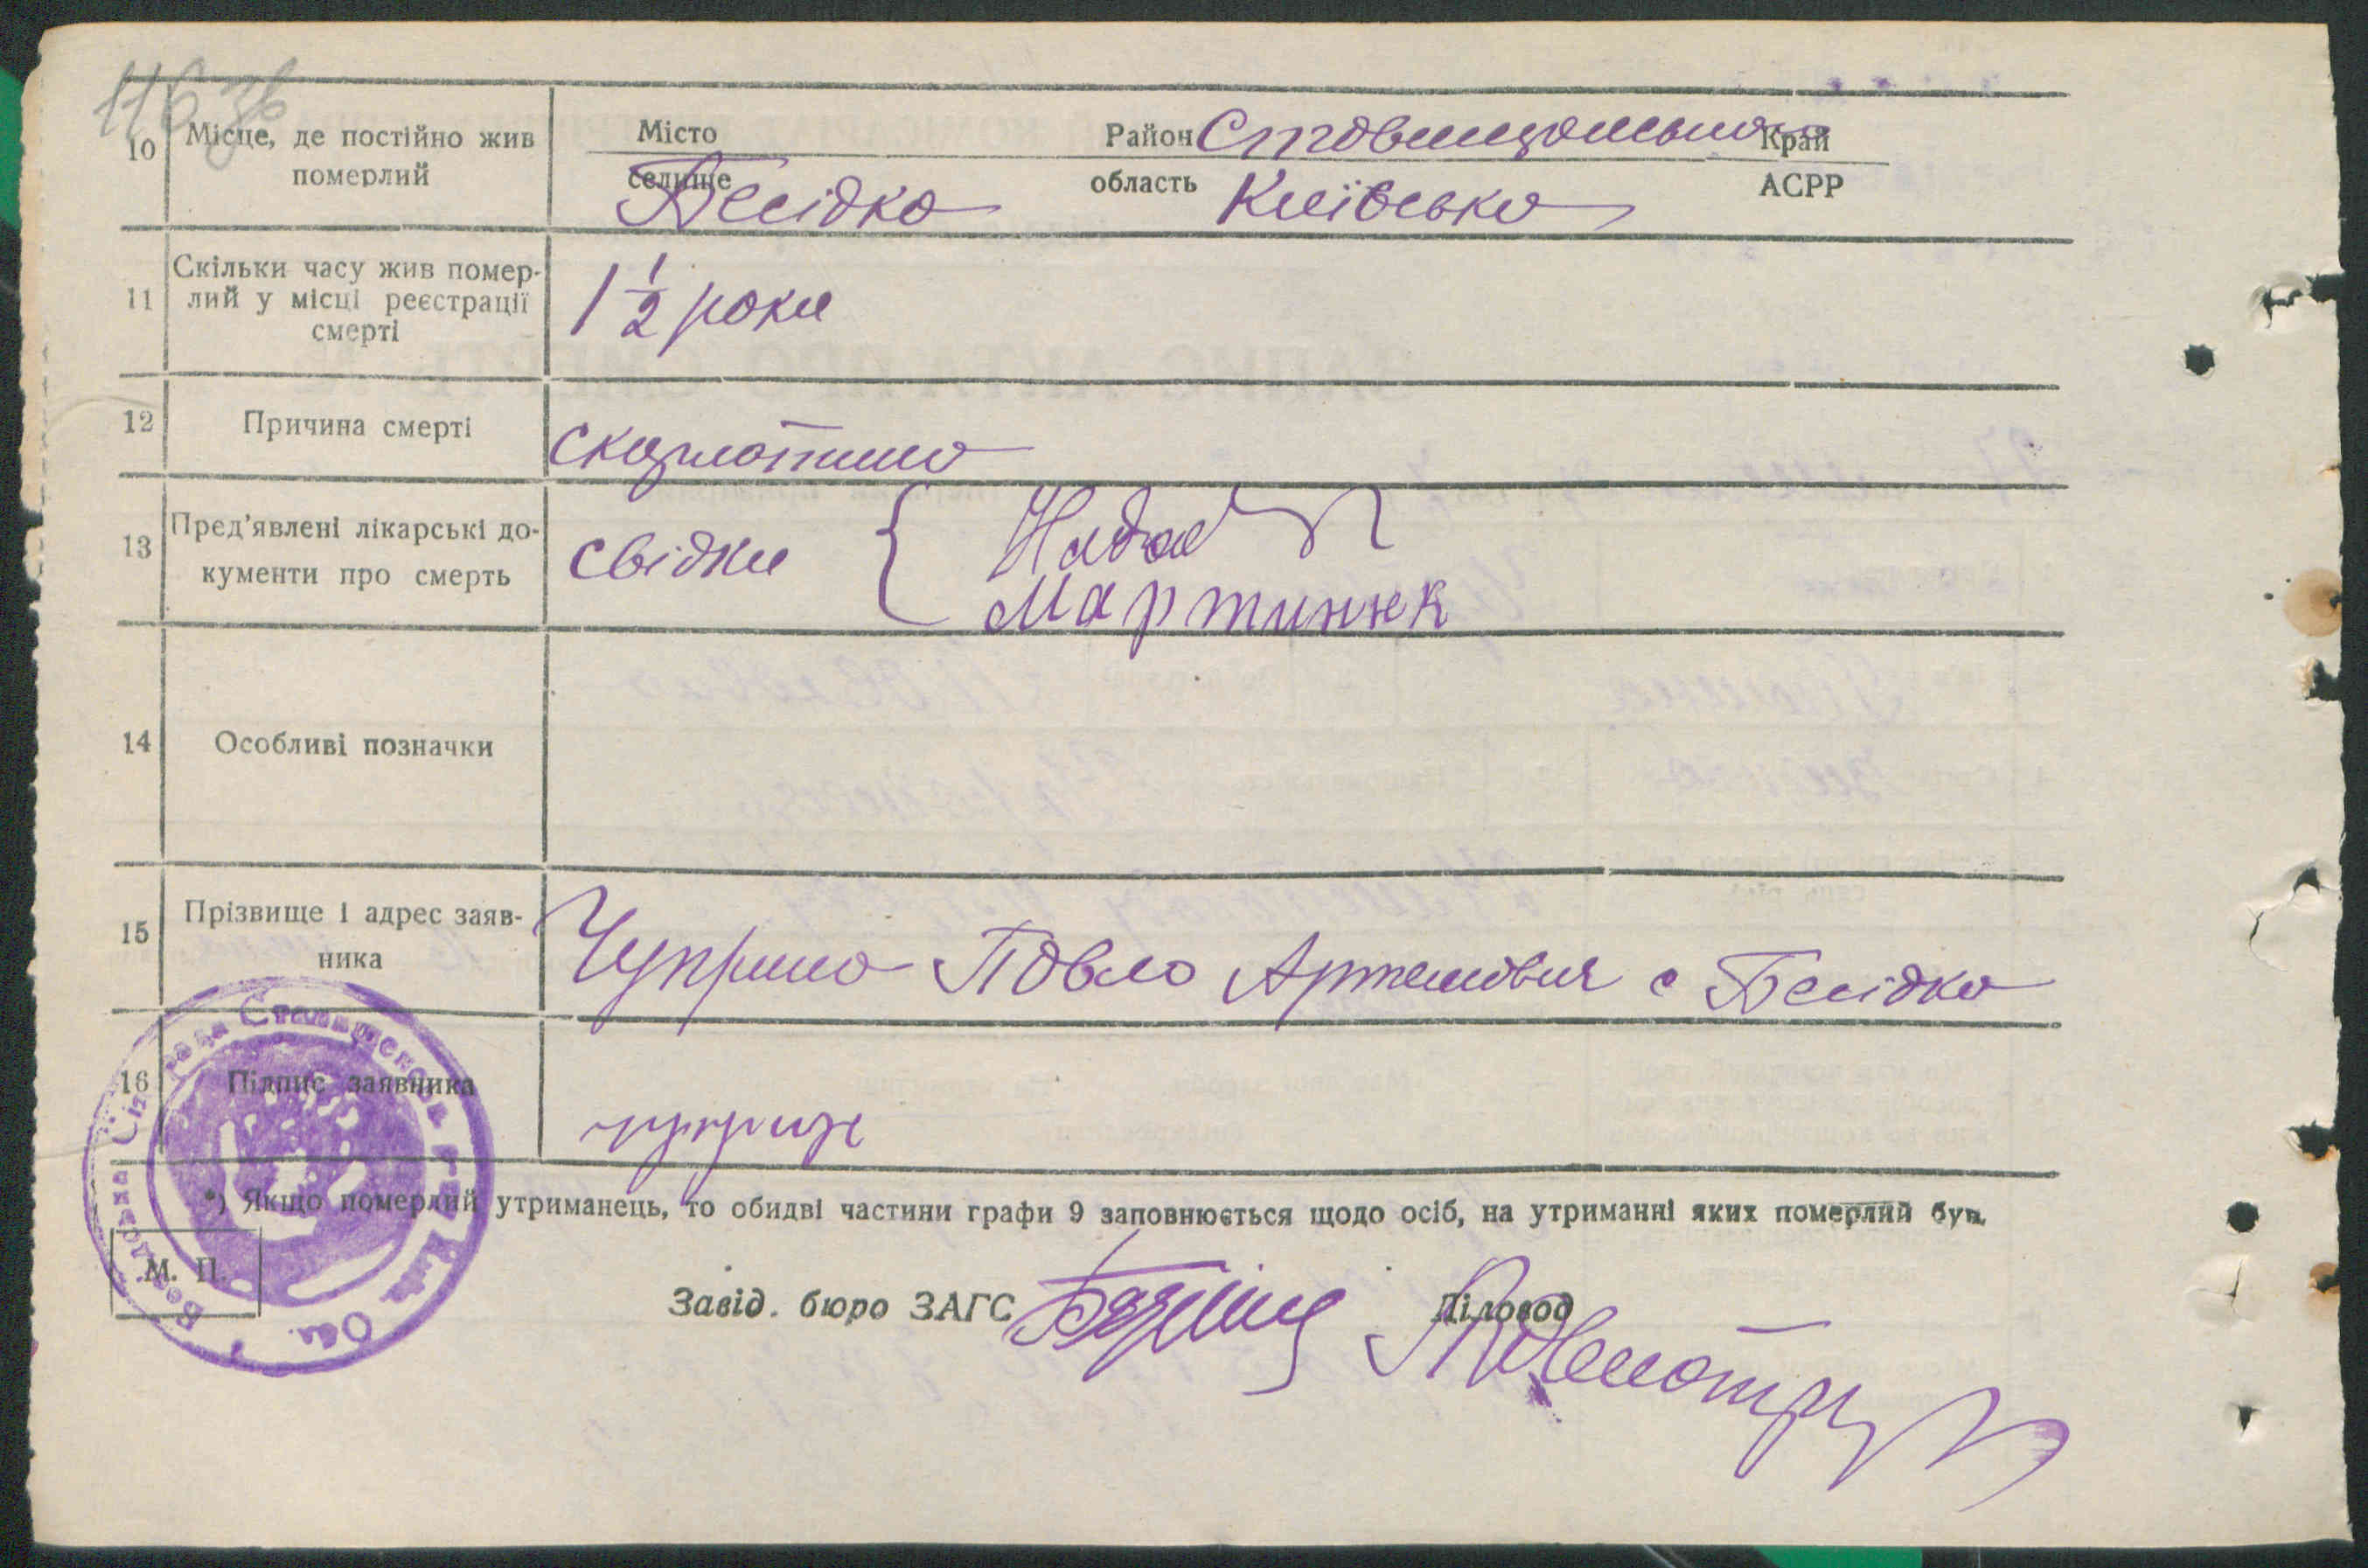 116 зв
10 Місце, де постійно жив померлий
Місто
селище Бесідка
Район Ставищанський Край
область Київська АСРР
11 Скільки часу жив помер-
лий у місці реєстрації
смерті
1 1/2 роки
12 Причина смерті
скарлатина
13 Пред'явлені лікарські до-
кументи про смерть
свідки {
Мартинюк
14 Особливі позначки
15 Прізвище і адрес заяв-
ника
Чуприна Павло Артемович с Бесідка
16 Підпис заявника
*) Якщо померлий утриманець, то обидві частини графи 9 заповнюється щодо осіб, на утриманні яких померлий був.
М. П.
Завід. бюро ЗАГС
Діловод